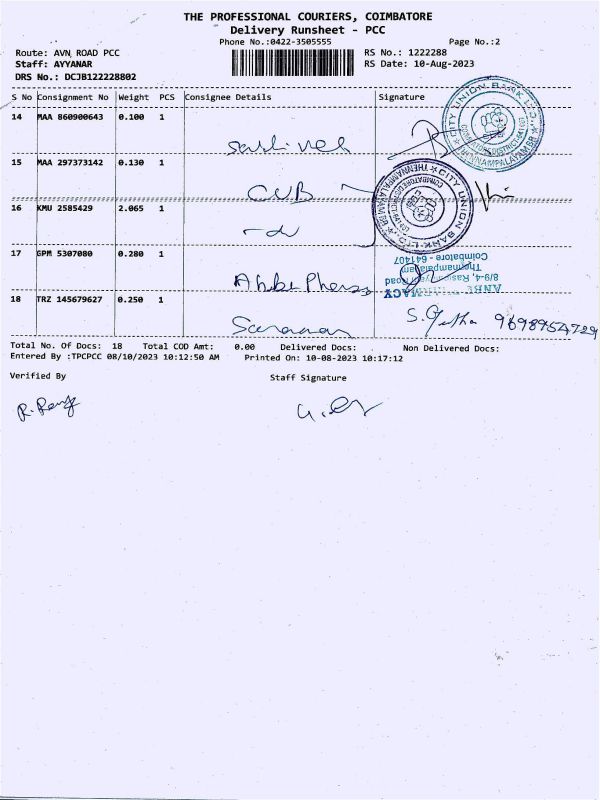 THE PROFESSIONAL COURIERS, COIMBATORE
Delivery Runsheet - PCC
Phone No.:0422-3505555
Page No.:2
Route: AVN ROAD PCC
RS No.: 1222288
Staff: AYYANAR
RS Date: 10-Aug-2023
DRS No.: DCJB122228802
S No Consignment No Weight PCS Consignee Details Signature
14 MAA 860900643 0.100 1
CITY UNION BANK LTD.,
THENNAMPALAYAM BR
15 MAA 297373142 0.130 1
CUB
CITY UNION BANK LTD.,
THENNAMPALAYAM BR
16 KMU 2585429 2.065 1
-do
17 GPM 5307080 0.280 1
Thennampalayam
Coimbatore - 641407
18 TRZ 145679627 0.250 1
Saravanan
S. Githa 9698954729
Total No. Of Docs: 18 Total COD Amt: 0.00 Delivered Docs: Non Delivered Docs:
Entered By :TPCPCC 08/10/2023 10:12:50 AM Printed On: 10-08-2023 10:17:12
Verified By
Staff Signature